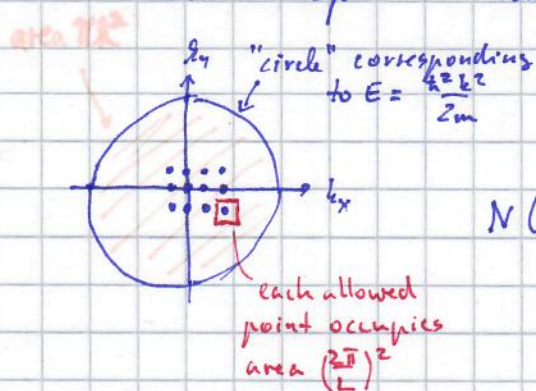 area πk²
k_y
"circle" corresponding
to E = ħ²k²/2m
k_x
N(
each allowed
point occupies
area (2π/L)²